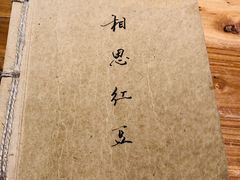 相思红豆